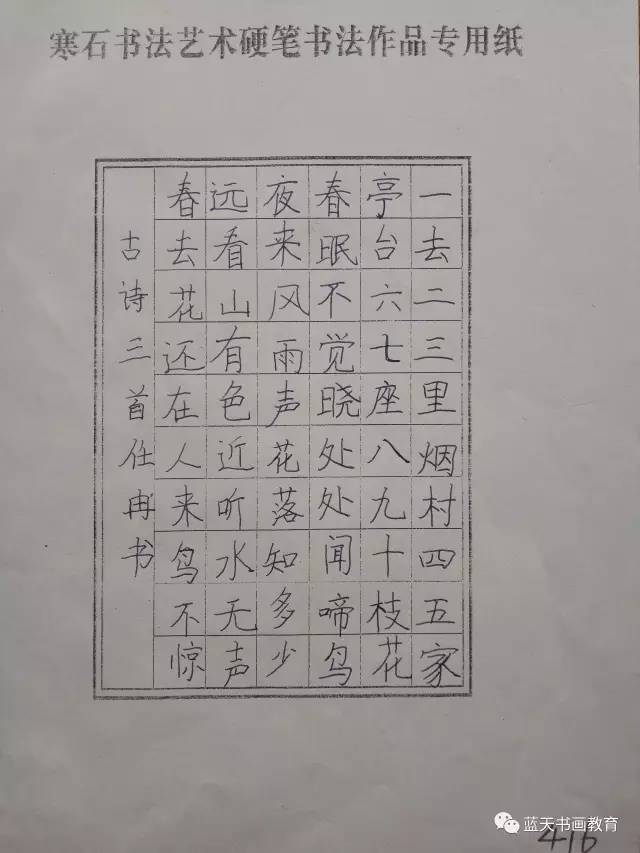 寒石书法艺术硬笔书法作品专用纸
一去二三里烟村四五家
亭台六七座八九十枝花
春眠不觉晓处处闻啼鸟
夜来风雨声花落知多少
远看山有色近听水无声
春去花还在人来鸟不惊
古诗三首任冉书
蓝天书画教育
416